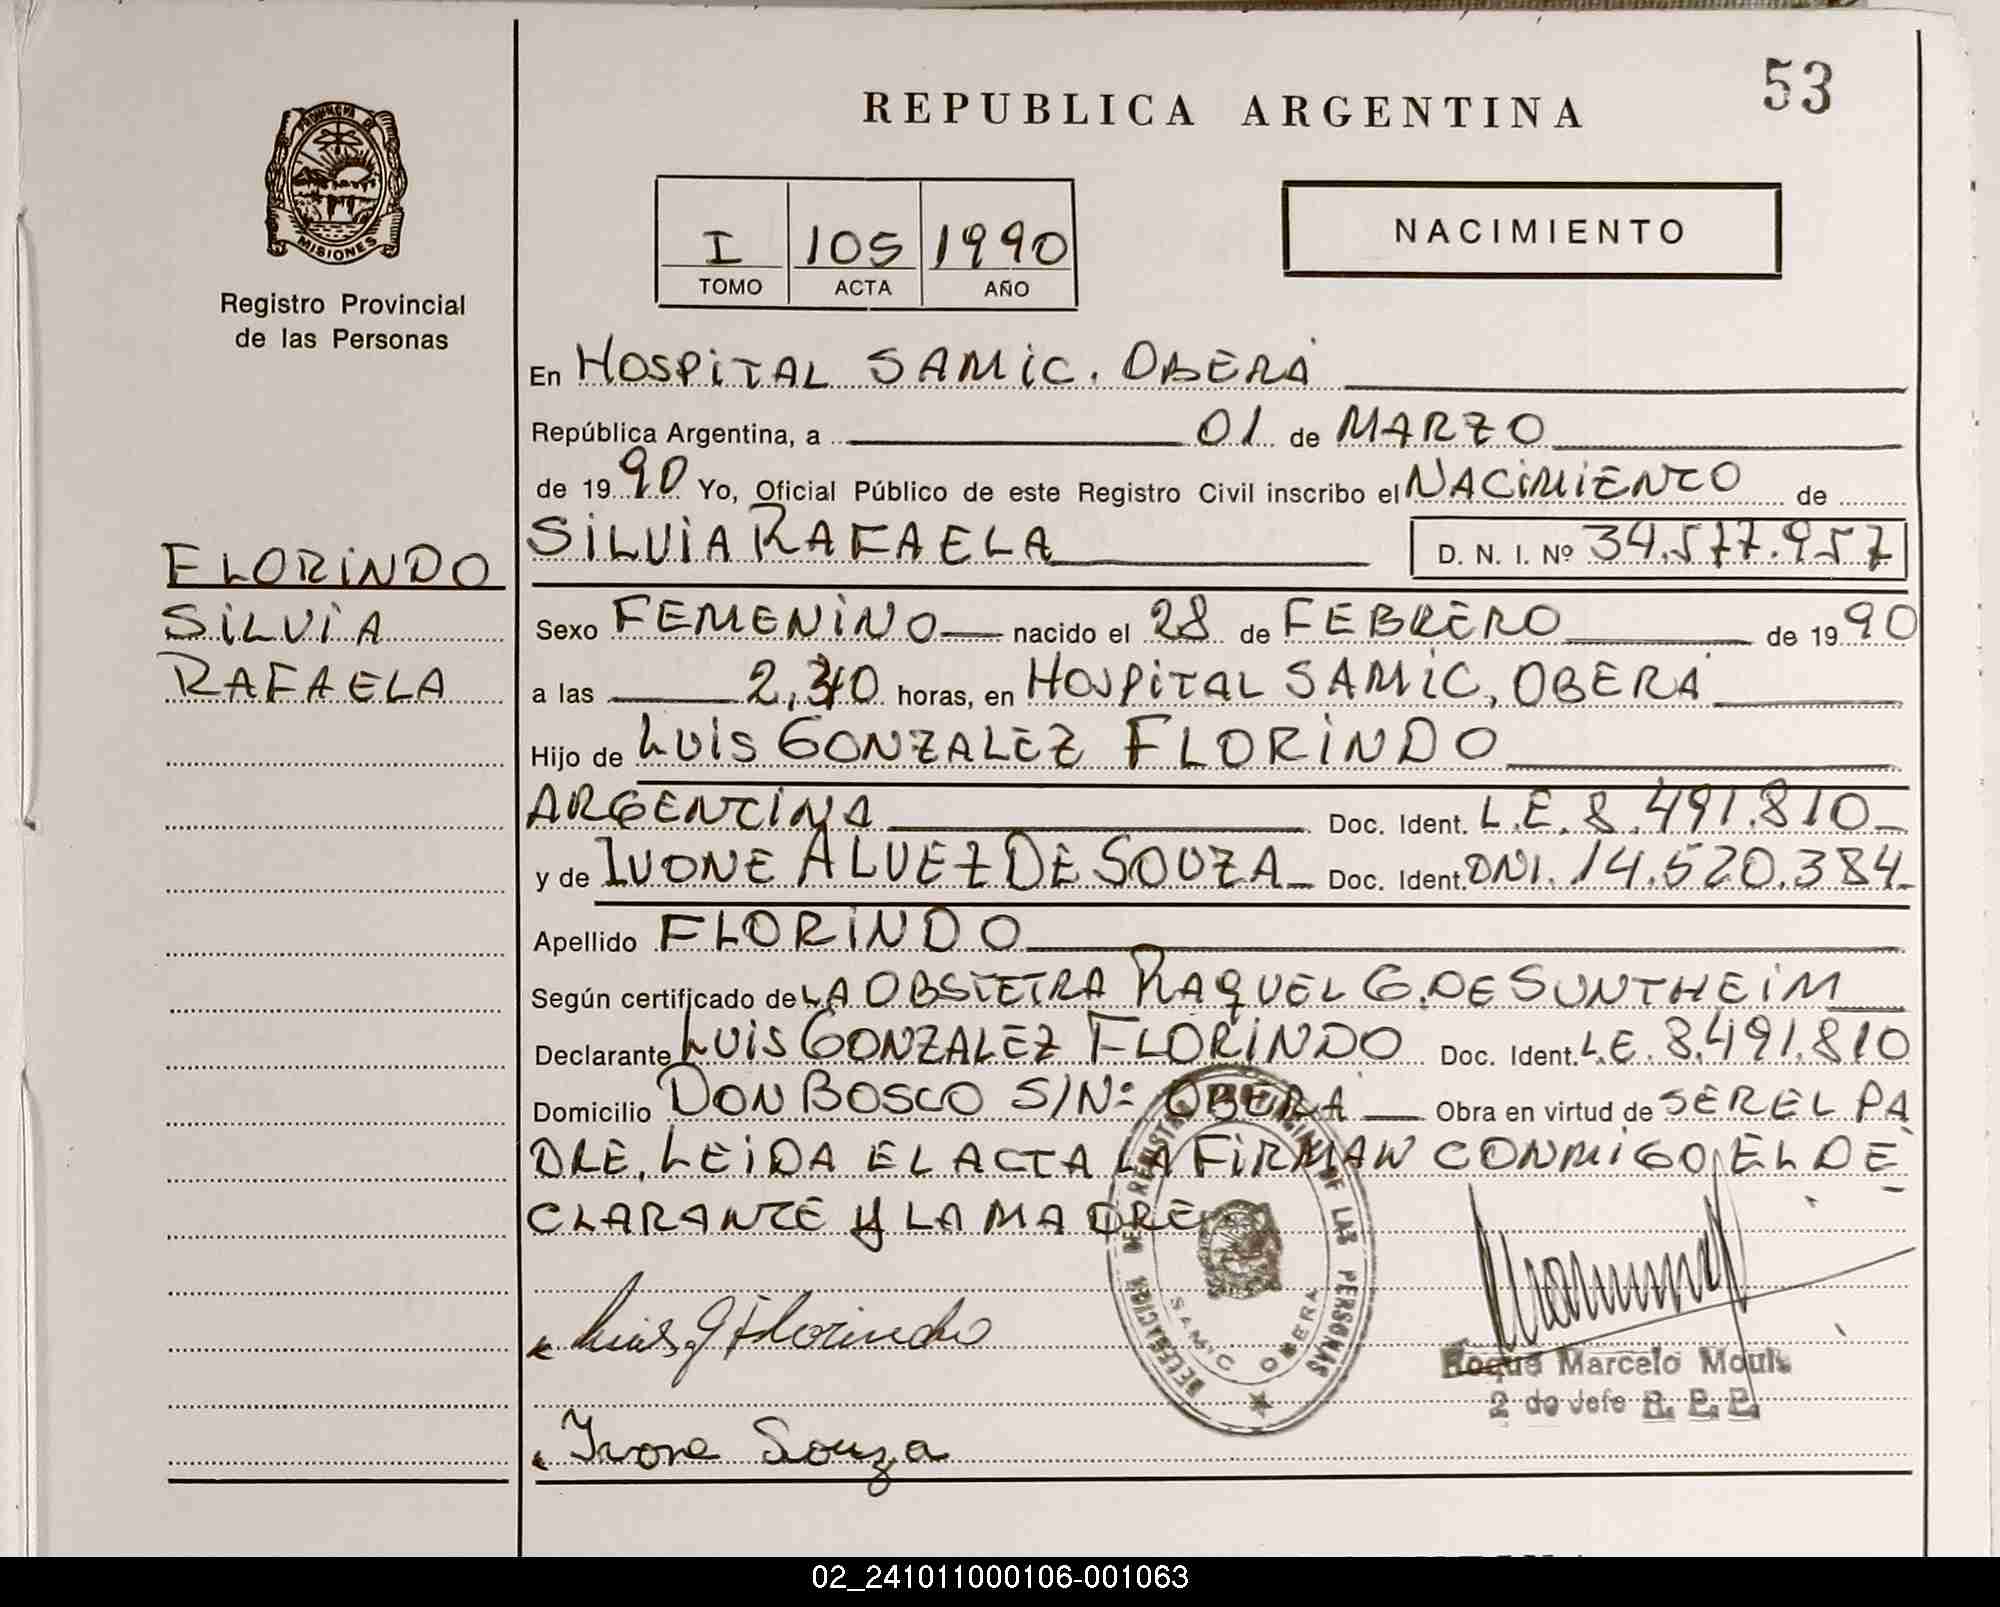 53
REPUBLICA ARGENTINA
PROVINCIA DE
MISIONES
Registro Provincial
de las Personas
I 105 1990
TOMO ACTA AÑO
NACIMIENTO
En HOSPITAL SAMIC. OBERÁ
República Argentina, a 01 de MARZO
de 1990 Yo, Oficial Público de este Registro Civil inscribo el NACIMIENTO de
SILVIA RAFAELA D. N. I. Nº 34.577.957
FLORINDO
SILVIA
RAFAELA
Sexo FEMENINO nacido el 28 de FEBRERO de 1990
a las 2,30 horas, en HOSPITAL SAMIC, OBERÁ
Hijo de LUIS GONZALEZ FLORINDO
ARGENTINA Doc. Ident. L.E. 8.491.810
y de IVONE ALVEZ DE SOUZA Doc. Ident. DNI. 14.520.384
Apellido FLORINDO
Según certificado de LA OBSTETRA RAQUEL G. DE SUNTHEIM
Declarante LUIS GONZALEZ FLORINDO Doc. Ident. L.E. 8.491.810
Domicilio DON BOSCO S/Nº OBERÁ Obra en virtud de SER EL PA
DRE, LEIDA EL ACTA LA FIRMAN CONMIGO, EL DE
CLARANTE Y LA MADRE
DELEGACION DE REGISTRO PROVINCIAL DE LAS PERSONAS
SAMIC OBERA
Luis G Florindo
Roque Marcelo
2 do Jefe R. P. P.
Ivone Souza
02_241011000106-001063